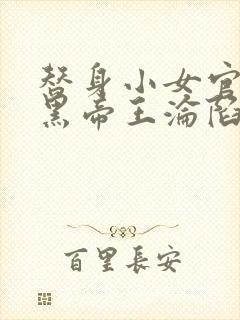 替身小女官
黑帝王淪陷
百里長安